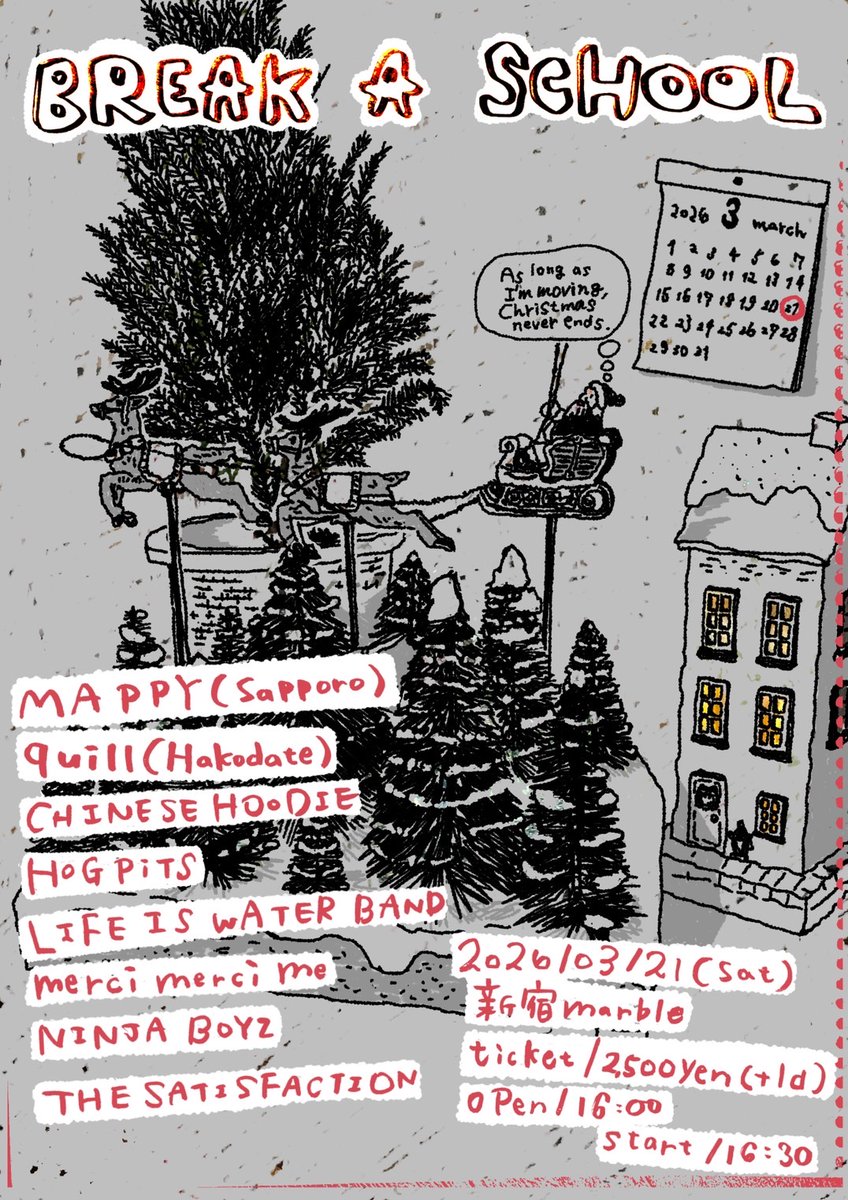 BREAK A SCHOOL
2026 3 march
1 2 3 4 5 6 7
8 9 10 11 12 13 14
15 16 17 18 19 20 21
22 23 24 25 26 27 28
29 30 31
As long as
I'm moving,
Christmas
never ends.
MAPPY(Sapporo)
quill(Hakodate)
CHINESE HOODIE
HOGPITS
LIFE IS WATER BAND
merci merci me
NINJA BOYZ
THE SATISFACTION
2026/03/21(Sat)
新宿marble
ticket/2500yen(+1d)
OPen/16:00
start/16:30